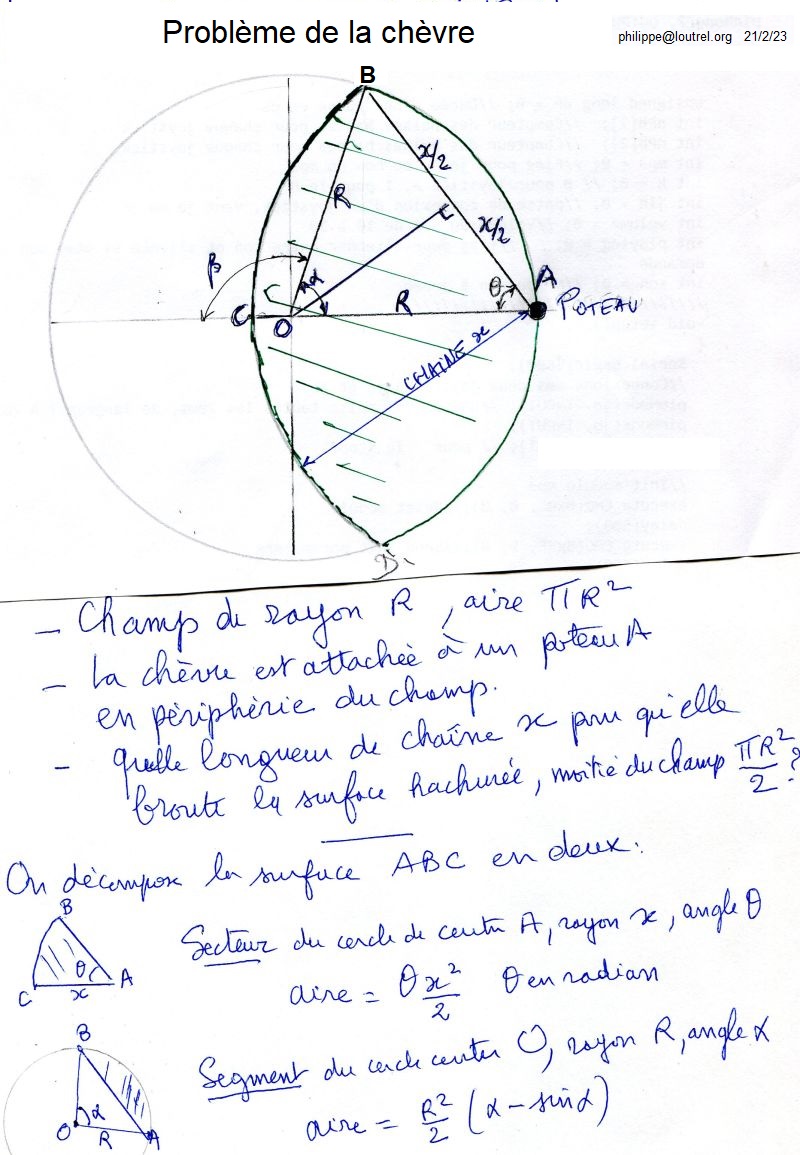 Problème de la chèvre
philippe@loutrel.org 21/2/23
B
x/2
R
C
x/2
β
α
θ
A
C
O
R
POTEAU
CHAINE x
D
- Champ de rayon R, aire πR²
- La chèvre est attachée à un poteau A
en périphérie du champ.
- quelle longueur de chaîne x pour qu'elle
broute la surface hachurée, moitié du champ πR²/2 ?
On décompose la surface ABC en deux.
B
θ
C
x
A
Secteur du cercle de centre A, rayon x, angle θ
aire = θ x²/2 θ en radian
B
α
O
R
A
Segment du cercle center O, rayon R, angle α
aire = R²/2 (α - sin α)